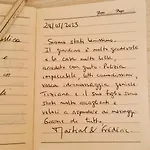 24/02/2023
Siamo stati benissimo.
Il giardino è molto gradevole
e la casa molto bella,
arredata con gusto. Pulizia
impeccabile, letti comodissimi,
vasca idromassaggio geniale.
Tiziana e il suo figlio sono
stati molto accoglienti e
veloci a rispondere ai messaggi.
Grazie di tutto,
Martial & Frédéric